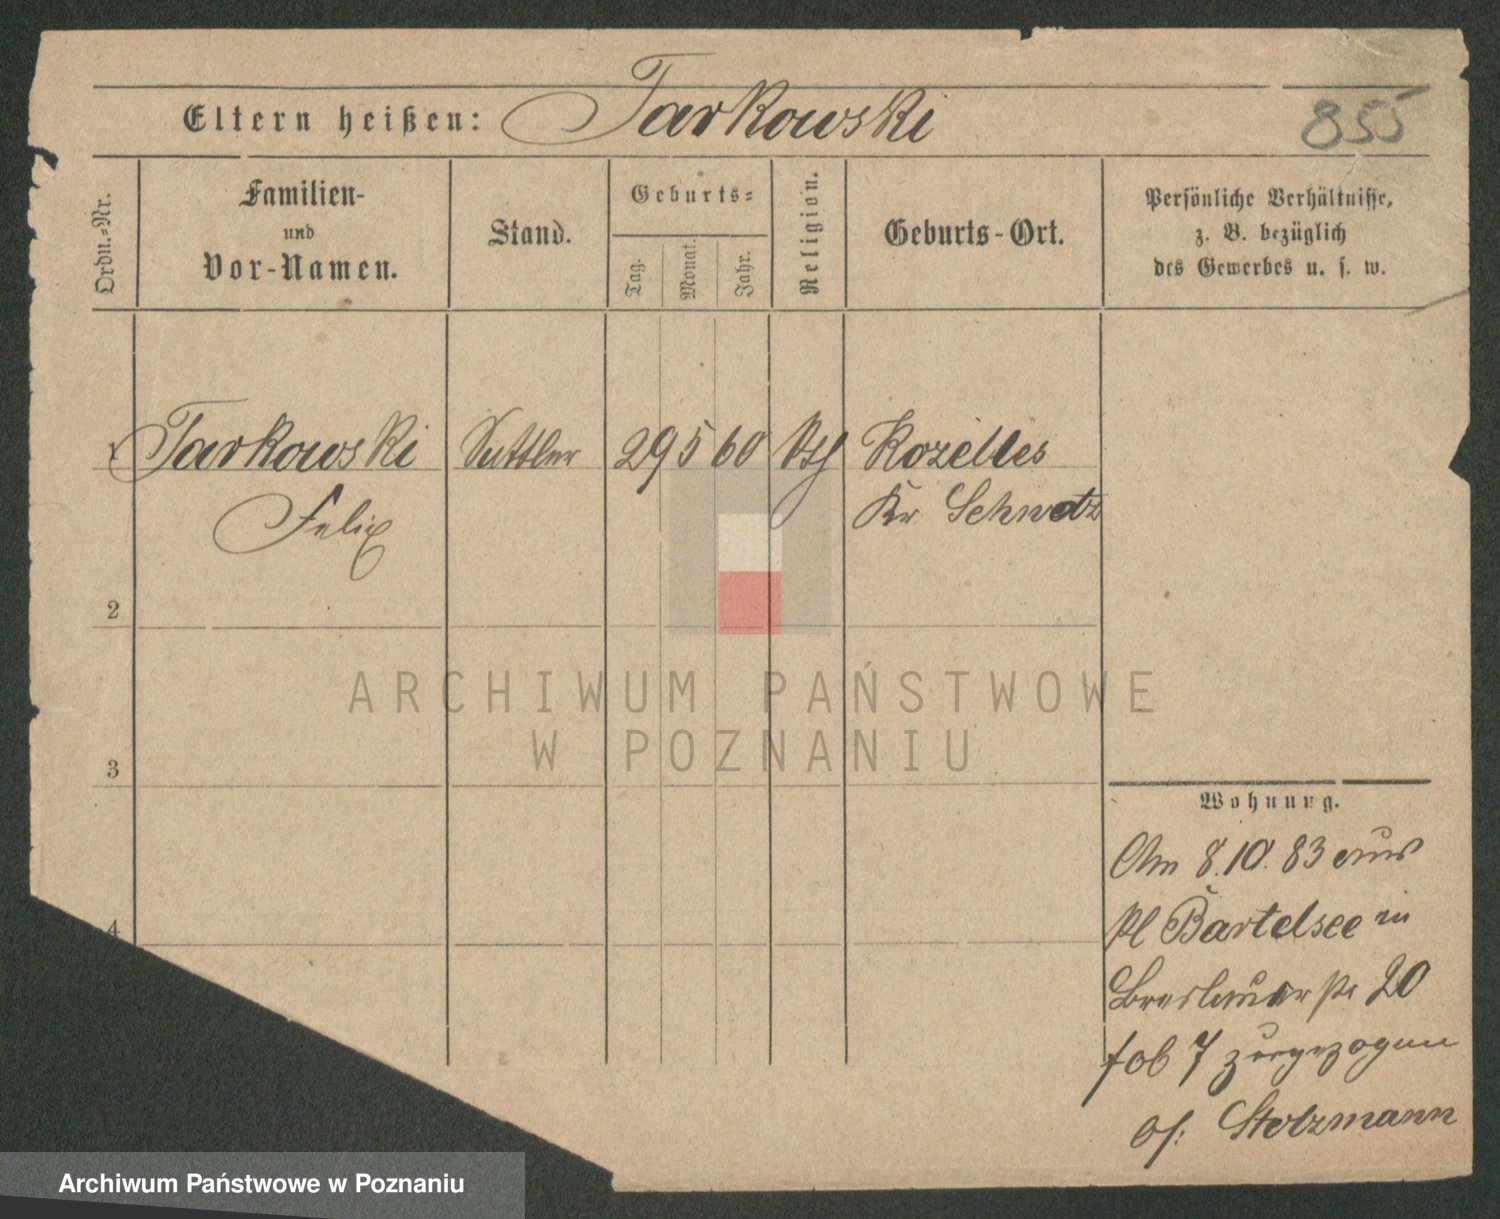 Eltern heißen: Tarkowski
855
Ordn.-Nr.
Familien-
und
Vor-Namen.
Stand.
Geburts-
Tag.
Monat.
Jahr.
Religion.
Geburts-Ort.
Persönliche Verhältnisse,
z. B. bezüglich
des Gewerbes u. s. w.
1 Tarkowski Sattler 29 5 60 Rozelles
Felix Kr Schwetz
2
3
4
ARCHIWUM PAŃSTWOWE
W POZNANIU
Wohnung.
Am 8.10.83 aus
Kl Bartelsee in
Breslauer str 20
zugezogen
Stolzmann
Archiwum Państwowe w Poznaniu